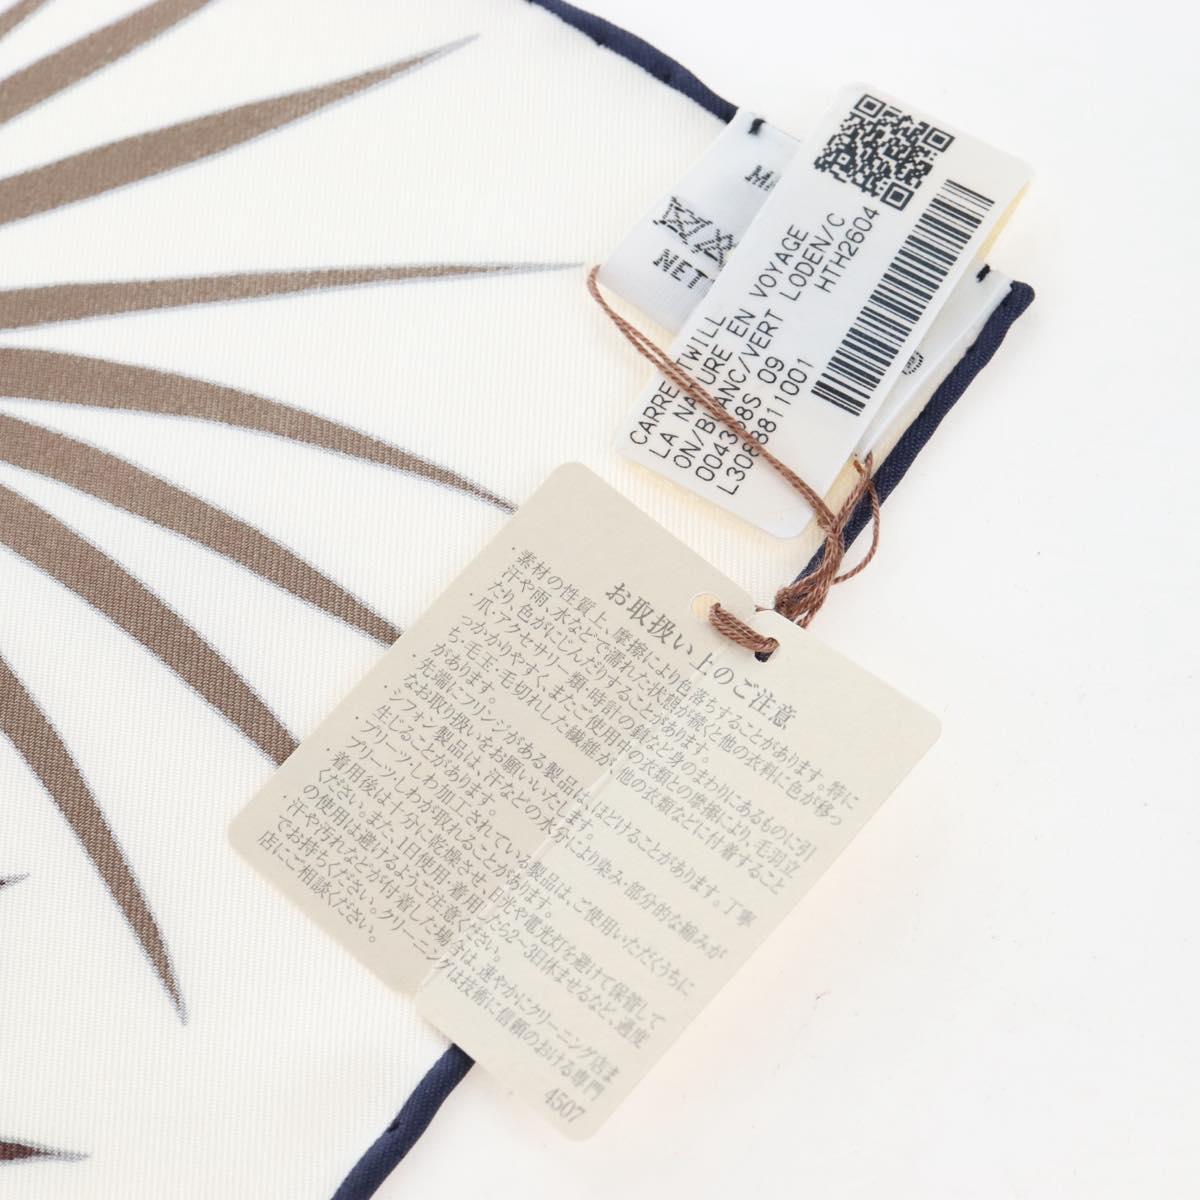 CARRE TWILL
LA NATURE EN VOYAGE
ON/BLANC/VERT LODEN/C
S 09 HTH2604
811001
お取扱い上のご注意
・素材の性質上、摩擦により色落ちすることがあります。特に
汗や雨、水などで濡れた状態が続くと他の衣料に色が移っ
たり、色がにじんだりすることがあります。
・爪・アクセサリー類・時計の鎖など身のまわりにあるものに引
っかかりやすく、またご使用中の衣類との摩擦により、毛羽立
ち・毛玉・毛切れした繊維が、他の衣類などに付着すること
があります。
・先端にフリンジがある製品は、ほどけることがあります。丁寧
なお取り扱いをお願いいたします。
・シフォン製品は、汗などの水分により染み・部分的な縮みが
生じることがあります。
・プリーツ・しわ加工されている製品は、ご使用いただくうちに
プリーツ・しわが取れることがあります。
・着用後は十分に乾燥させ、日光や電光灯を避けて保管して
ください。また、1日使用・着用したら2～3日休ませるなど、過度
の使用は避けるようご注意ください。
・汗や汚れなどが付着した場合は、速やかにクリーニング店ま
でお持ちください。クリーニングは技術に信頼のおける専門
店にご相談ください。
4507